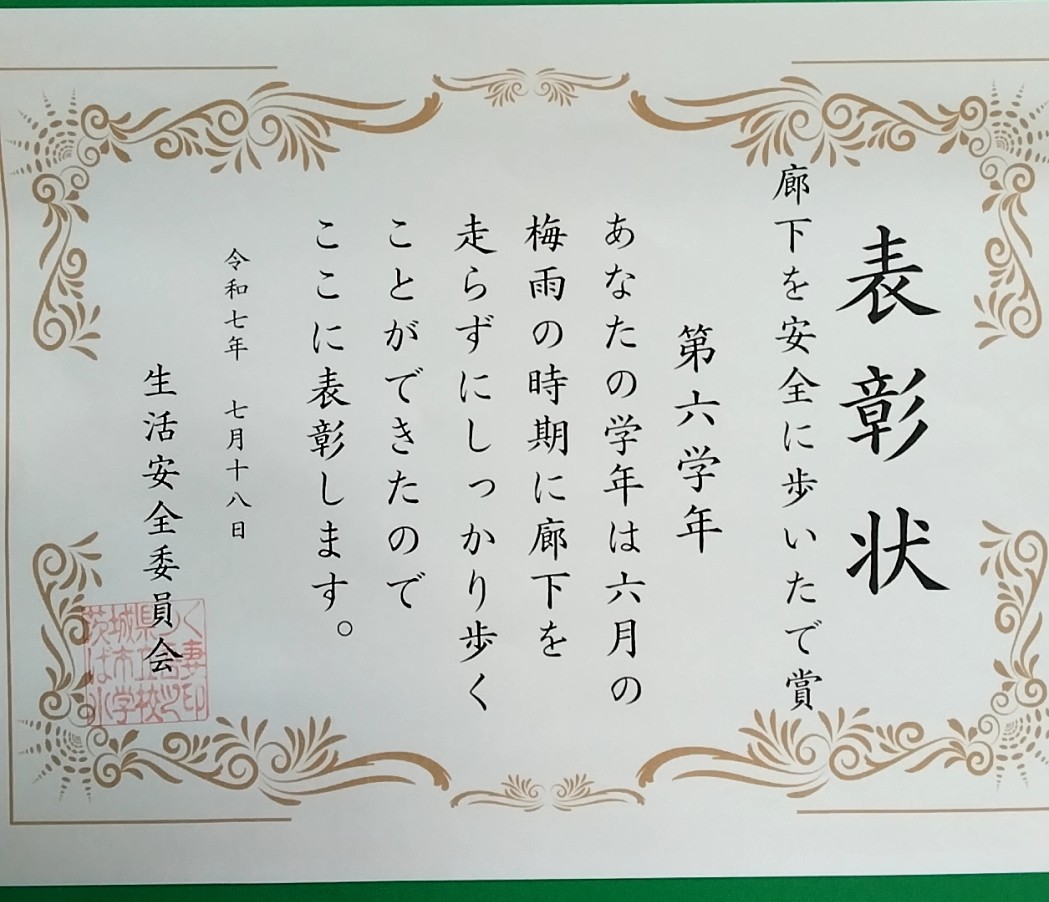 表彰状
廊下を安全に歩いたで賞
第六学年
あなたの学年は六月の
梅雨の時期に廊下を
走らずにしっかり歩く
ことができたので
ここに表彰します。
令和七年　七月十八日
生活安全委員会
茨城県つく
ば市立吾妻
小学校之印